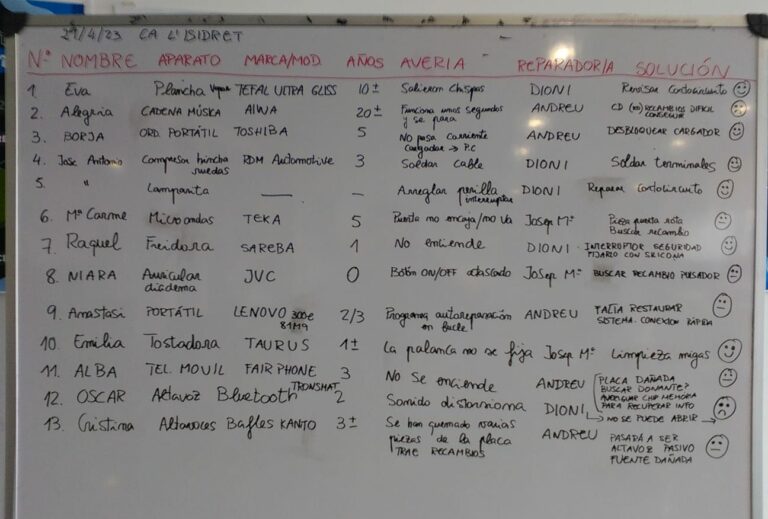 29/4/23 CA L'ISIDRET
Nº NOMBRE APARATO MARCA/MOD AÑOS AVERIA REPARADOR/A SOLUCIÓN
1. Eva Plancha vapor TEFAL ULTRA GLISS 10 ± Salieron chispas DIONI Revisar cortocircuito
2. Alegria CADENA MÚSICA AIWA 20± Funciona unos segundos y se para ANDREU CD (no) RECAMBIOS DIFICIL CONSEGUIR
3. BORJA ORD. PORTÁTIL TOSHIBA 5 No pasa corriente cargador → P.C ANDREU DESBLOQUEAR CARGADOR
4. Jose Antonio Compresor hincha ruedas RDM Automotive 3 Soldar cable DIONI Soldar terminales
5. " Lamparita — — Arreglar perilla interruptor DIONI Reparar cortocircuito
6. Mª Carme Microondas TEKA 5 Puerta no encaja/no va Josep Mª Pieza puerta rota Buscar recambio
7. Raquel Freidora SAREBA 1 No enciende DIONI INTERRUPTOR SEGURIDAD FIJARLO CON SILICONA
8. NIARA Auricular diadema JVC 0 Botón ON/OFF atascado Josep Mª BUSCAR RECAMBIO PULSADOR
9. Anastasi PORTÁTIL LENOVO 300e 81M9 2/3 Programa autoreparación en bucle ANDREU FALTA RESTAURAR SISTEMA. CONEXIÓN RÁPIDA
10. Emilia Tostadora TAURUS 1± La palanca no se fija Josep Mª Limpieza migas
11. ALBA TEL. MOVIL FAIRPHONE 3 No Se enciende ANDREU PLACA DAÑADA BUSCAR DONANTE? AVERIGUAR CHIP MEMORIA PARA RECUPERAR INFO
12. OSCAR Altavoz Bluetooth TRONSMAT 2 Sonido distorsiona DIONI → NO SE PUEDE ABRIR →
13. Cristina Altavoces Bafles KANTO 3± Se han quemado varias piezas de la placa TRAE RECAMBIOS ANDREU PASARÁ A SER ALTAVOZ PASIVO FUENTE DAÑADA